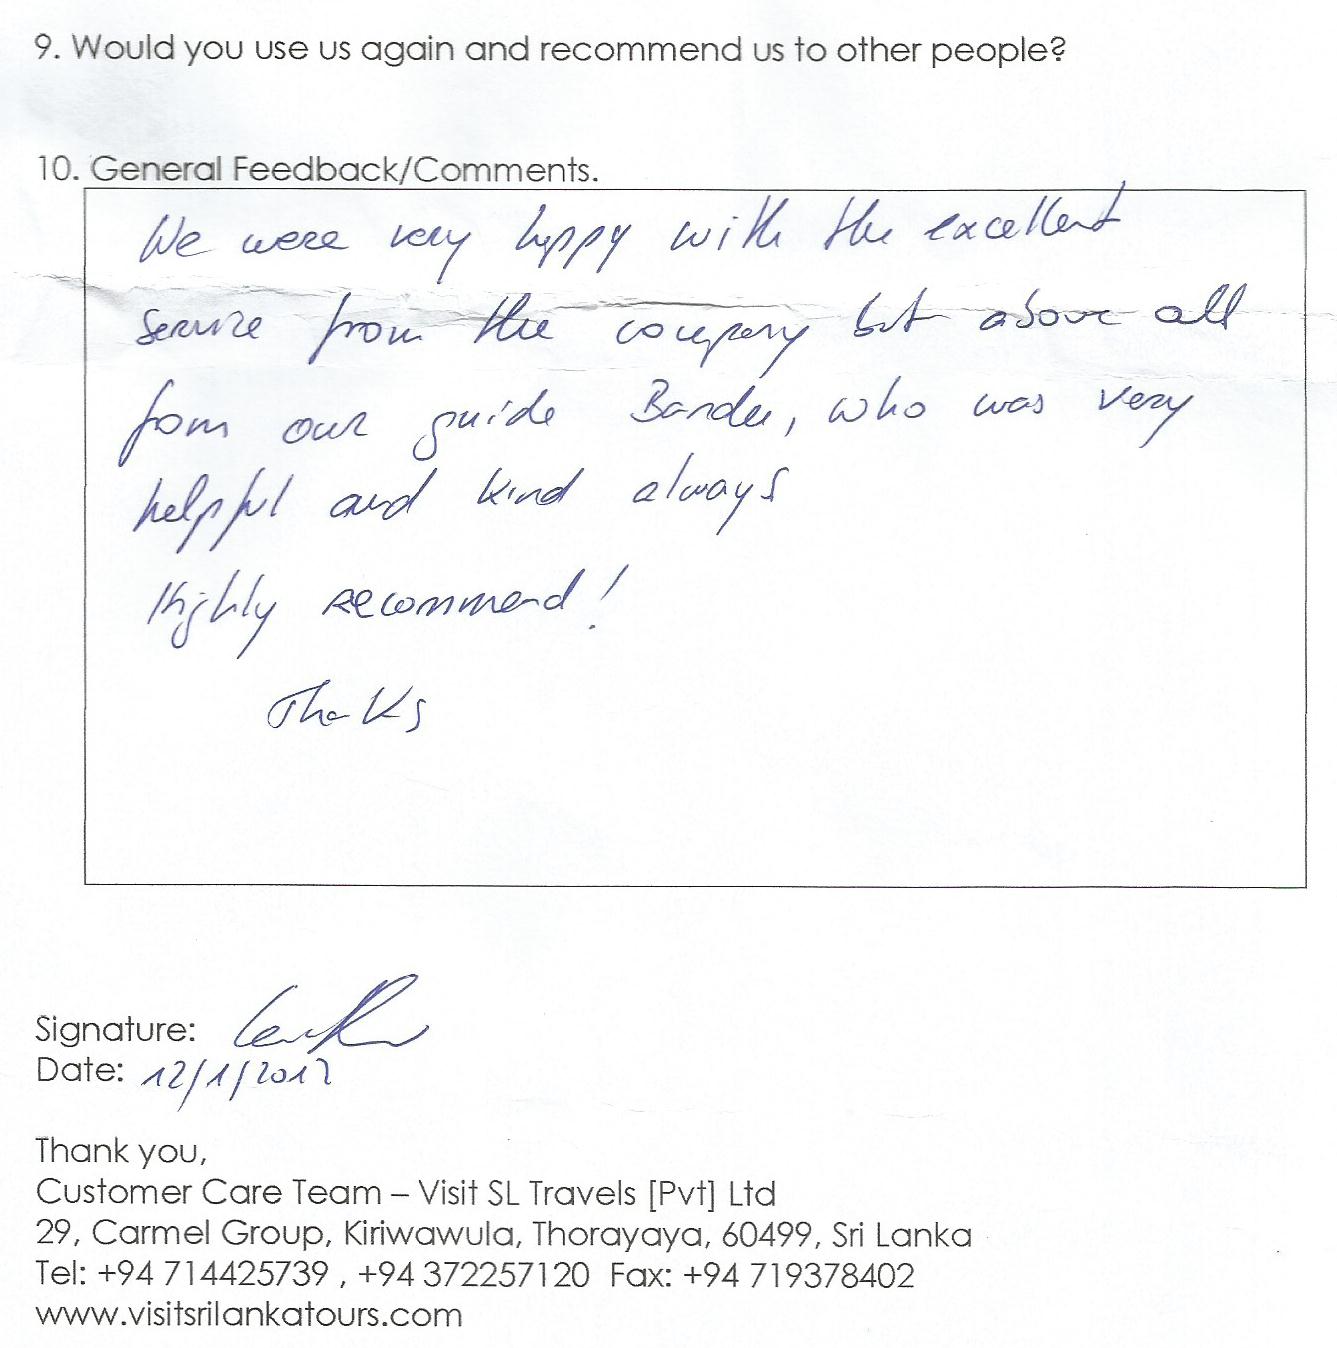 9. Would you use us again and recommend us to other people?
10. General Feedback/Comments.
We were very happy with the excellent
service from the company but above all
from our guide Bandu, who was very
helpful and kind always
Highly recommend!
Thanks
Signature:
Date: 12/1/2017
Thank you,
Customer Care Team – Visit SL Travels [Pvt] Ltd
29, Carmel Group, Kiriwawula, Thorayaya, 60499, Sri Lanka
Tel: +94 714425739 , +94 372257120 Fax: +94 719378402
www.visitsrilankatours.com